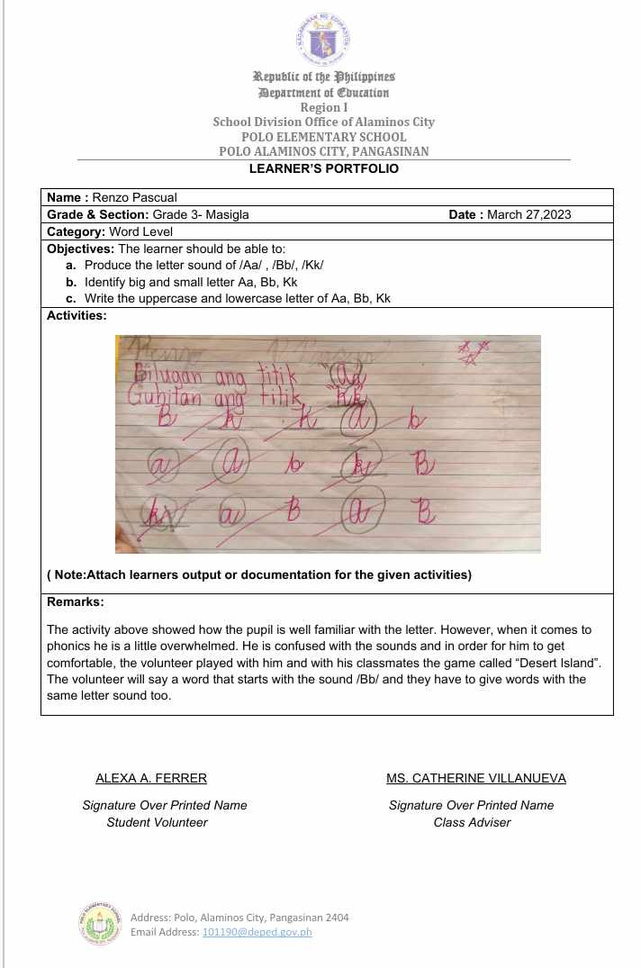 Republic of the Philippines
Department of Education
Region I
School Division Office of Alaminos City
POLO ELEMENTARY SCHOOL
POLO ALAMINOS CITY, PANGASINAN
LEARNER'S PORTFOLIO
Name : Renzo Pascual
Grade & Section: Grade 3- Masigla Date : March 27,2023
Category: Word Level
Objectives: The learner should be able to:
a. Produce the letter sound of /Aa/ , /Bb/, /Kk/
b. Identify big and small letter Aa, Bb, Kk
c. Write the uppercase and lowercase letter of Aa, Bb, Kk
Activities:
Bilugan ang titik "Aa
Guhitan ang titik "Kk
B k K a b
a a b k B
k a B a B
( Note:Attach learners output or documentation for the given activities)
Remarks:
The activity above showed how the pupil is well familiar with the letter. However, when it comes to
phonics he is a little overwhelmed. He is confused with the sounds and in order for him to get
comfortable, the volunteer played with him and with his classmates the game called “Desert Island”.
The volunteer will say a word that starts with the sound /Bb/ and they have to give words with the
same letter sound too.
ALEXA A. FERRER MS. CATHERINE VILLANUEVA
Signature Over Printed Name Signature Over Printed Name
Student Volunteer Class Adviser
Address: Polo, Alaminos City, Pangasinan 2404
Email Address: 101190@deped.gov.ph